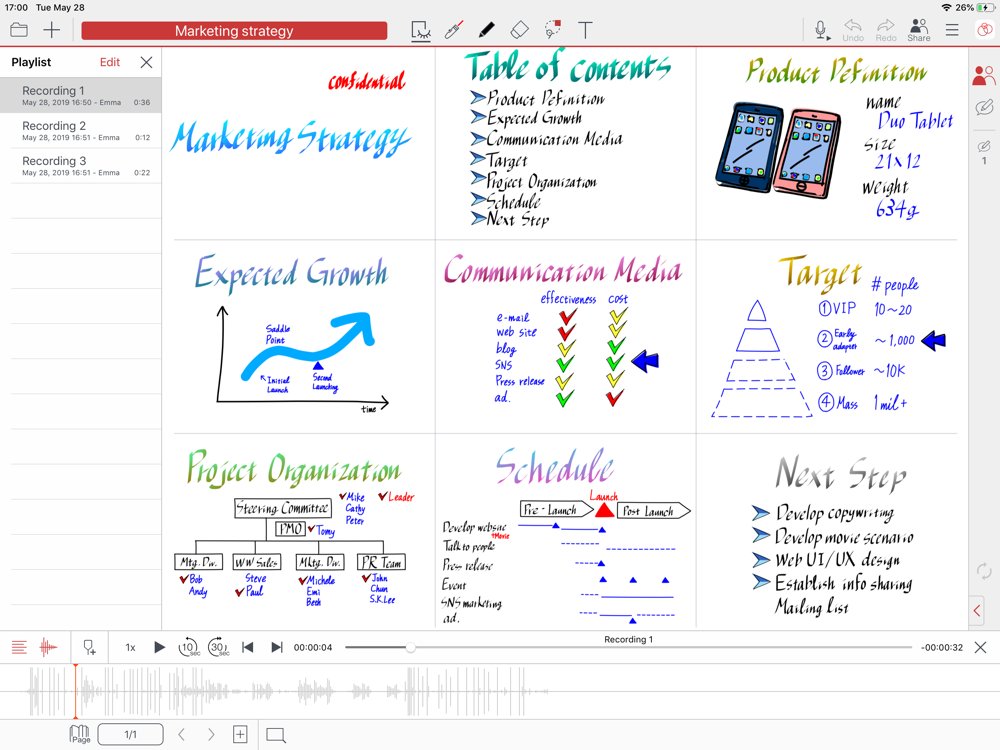 17:00 Tue May 28
26%
Marketing strategy
Undo
Redo
Share
Playlist
Edit
Recording 1
May 28, 2019 16:50 - Emma 0:36
Recording 2
May 28, 2019 16:51 - Emma 0:12
Recording 3
May 28, 2019 16:51 - Emma 0:22
1
confidential
Marketing Strategy
Table of contents
Product Definition
Expected Growth
Communication Media
Target
Project Organization
Schedule
Next Step
Product Definition
name
Duo Tablet
size
21×12
weight
634g
Expected Growth
Saddle
Point
Initial
Launch
Second
Launching
time
Communication Media
effectiveness cost
e-mail
web site
blog
SNS
Press release
ad.
Target
# people
① VIP 10~20
② Early adapter ~1,000
③ Follower ~10K
④ Mass 1 mil+
Project Organization
Steering Committee
Mike
Cathy
Peter
Leader
PMO
Tomy
Mtg. Div.
Bob
Andy
WW Sales
Steve
Paul
Mktg. Div.
Michele
Emi
Beth
PR Team
John
Chun
S.K.Lee
Schedule
Launch
Pre-Launch
Post Launch
Develop website
+Movie
Talk to people
Press release
Event
SNS marketing
ad.
Next Step
Develop copywriting
Develop movie scenario
Web UI/UX design
Establish info sharing
Mailing list
1x
10 sec
30 sec
00:00:04
Recording 1
-00:00:32
Page
1/1